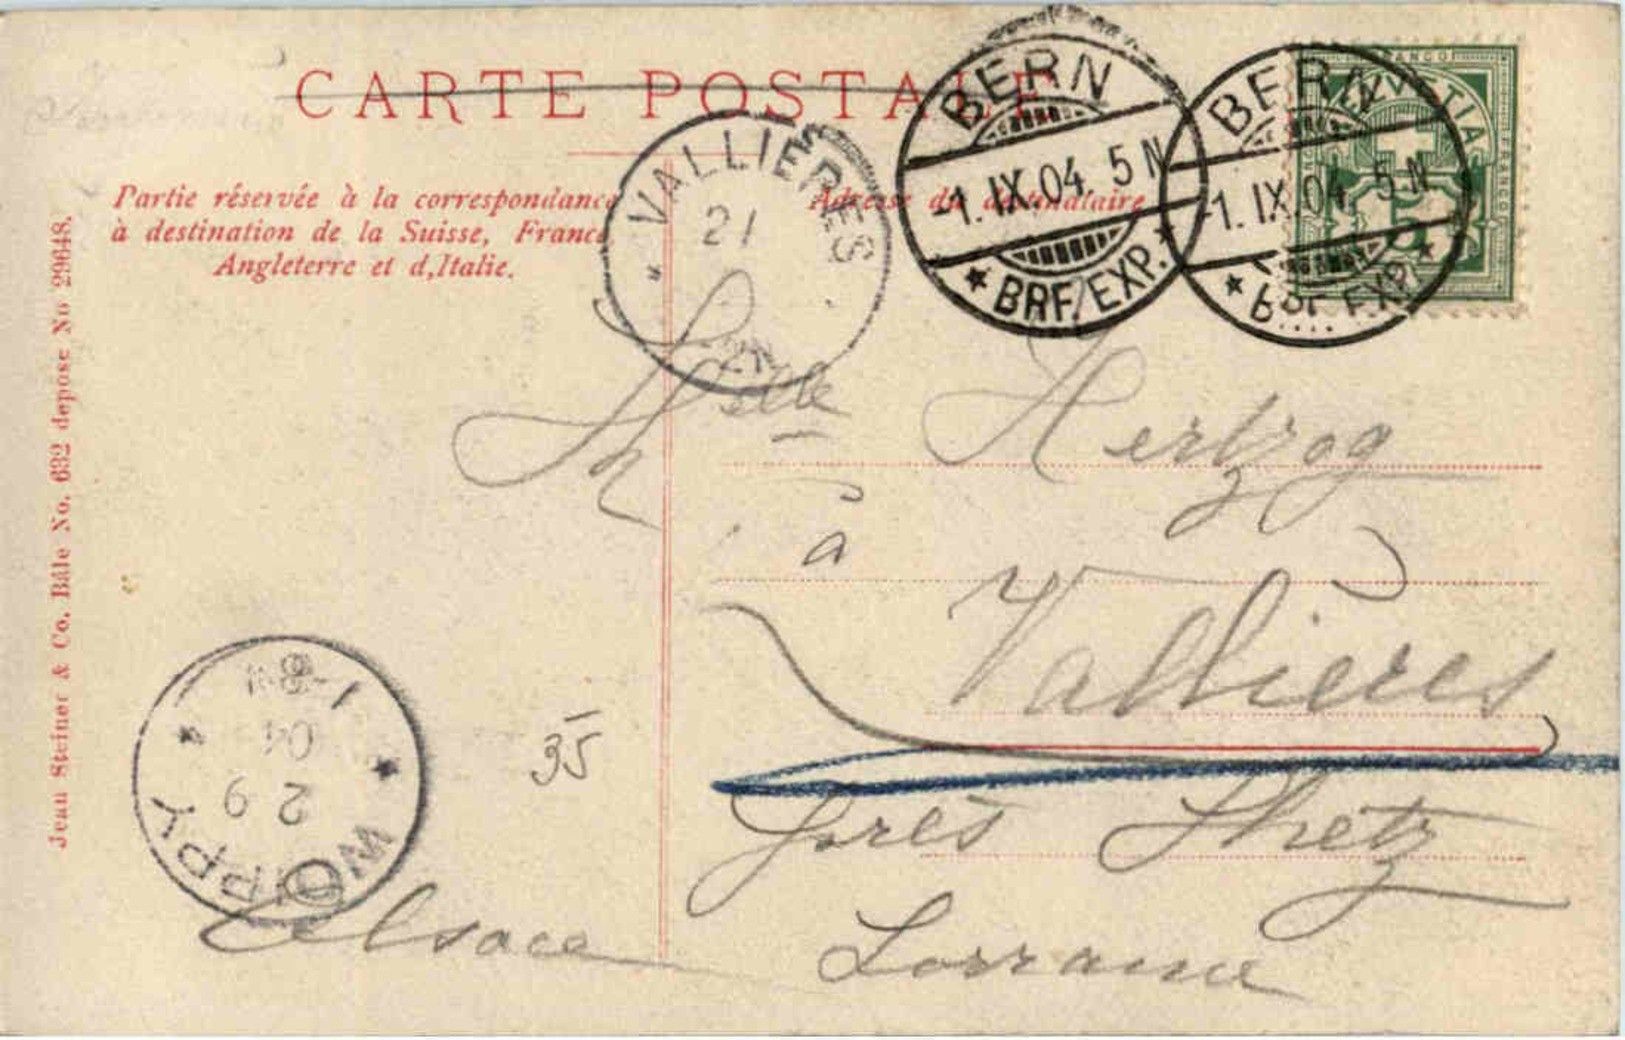 CARTE POSTALE
Partie réservée à la correspondance
à destination de la Suisse, France
Angleterre et d,Italie.
Adresse du destinataire
Jean Steiner & Co. Bâle No. 632 depose No 29648.
VALLIERES
21
BERN
-1.IX.04. 5N
BRF. EXP.
BERN
-1.IX.04. 5N
BRF. EXP.
FRANCO
HELVETIA
5
Melle Hertzog
à
Vallières
près Metz
Alsace Lorraine
35
WOIPPY
2 9
04